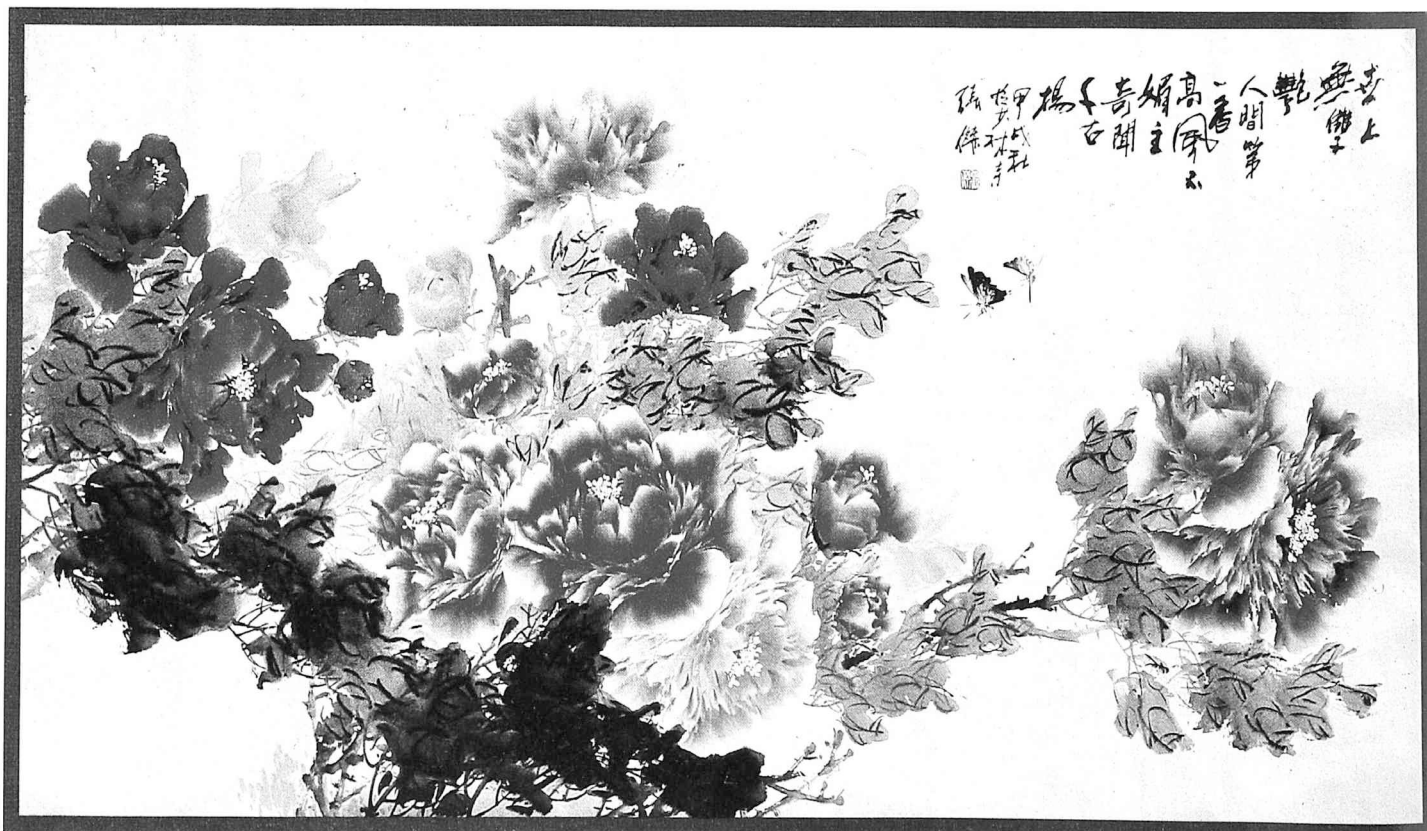 世上
無
艷
人間第
一香
高風不
媚主
奇聞
千古
揚
甲戌秋
林寺
張傑